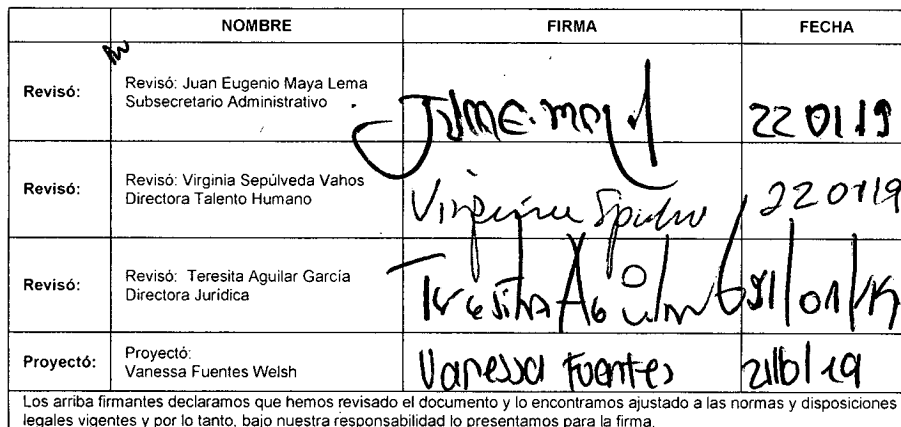 NOMBRE FIRMA FECHA
Revisó: Revisó: Juan Eugenio Maya Lema
Subsecretario Administrativo
22 01 19
Revisó: Revisó: Virginia Sepúlveda Vahos
Directora Talento Humano
Virginia 220119
Revisó: Revisó: Teresita Aguilar García
Directora Jurídica
Teresita Aguilar
Proyectó: Proyectó:
Vanessa Fuentes Welsh
Vanessa Fuentes
Los arriba firmantes declaramos que hemos revisado el documento y lo encontramos ajustado a las normas y disposiciones
legales vigentes y por lo tanto, bajo nuestra responsabilidad lo presentamos para la firma.